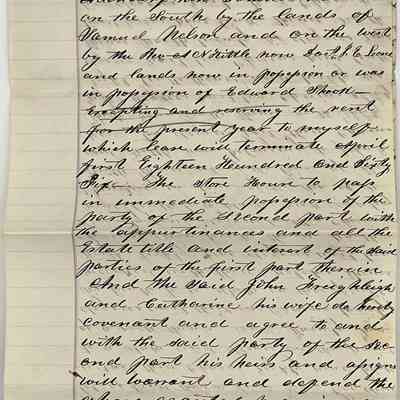 on the South by the lands of
Samuel Nelson and on the west
by the Rev A N Kittle now
and lands now in possession or was
in possession of Edward Shook
Excepting and reserving the rent
for the present year to myself
which lease will terminate April
first Eighteen Hundred and Sixty
Six The Store House to pass
in immediate possession of the
party of the second part with
the appurtinances and all the
Estate title and interest of the said
parties of the first part therein
And the said John Freighleigh
and Catharine his wife do hereby
covenant and agree to and
with the said party of the sec
ond part his heirs and assigns
will warrant and defend the